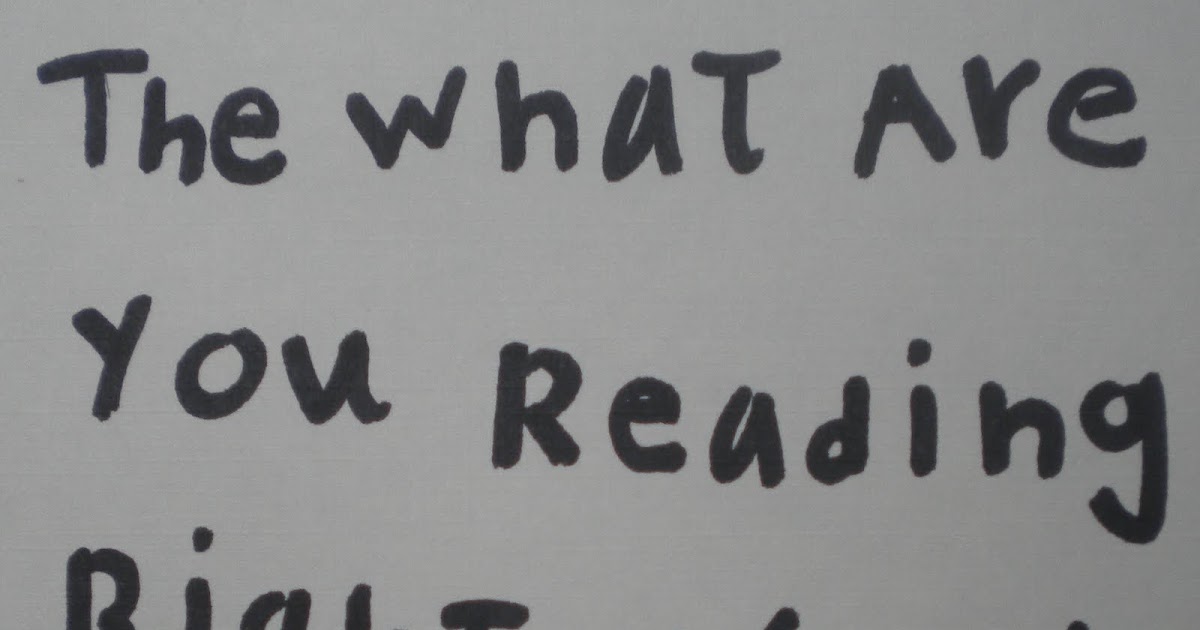 The what Are
you Reading
Right